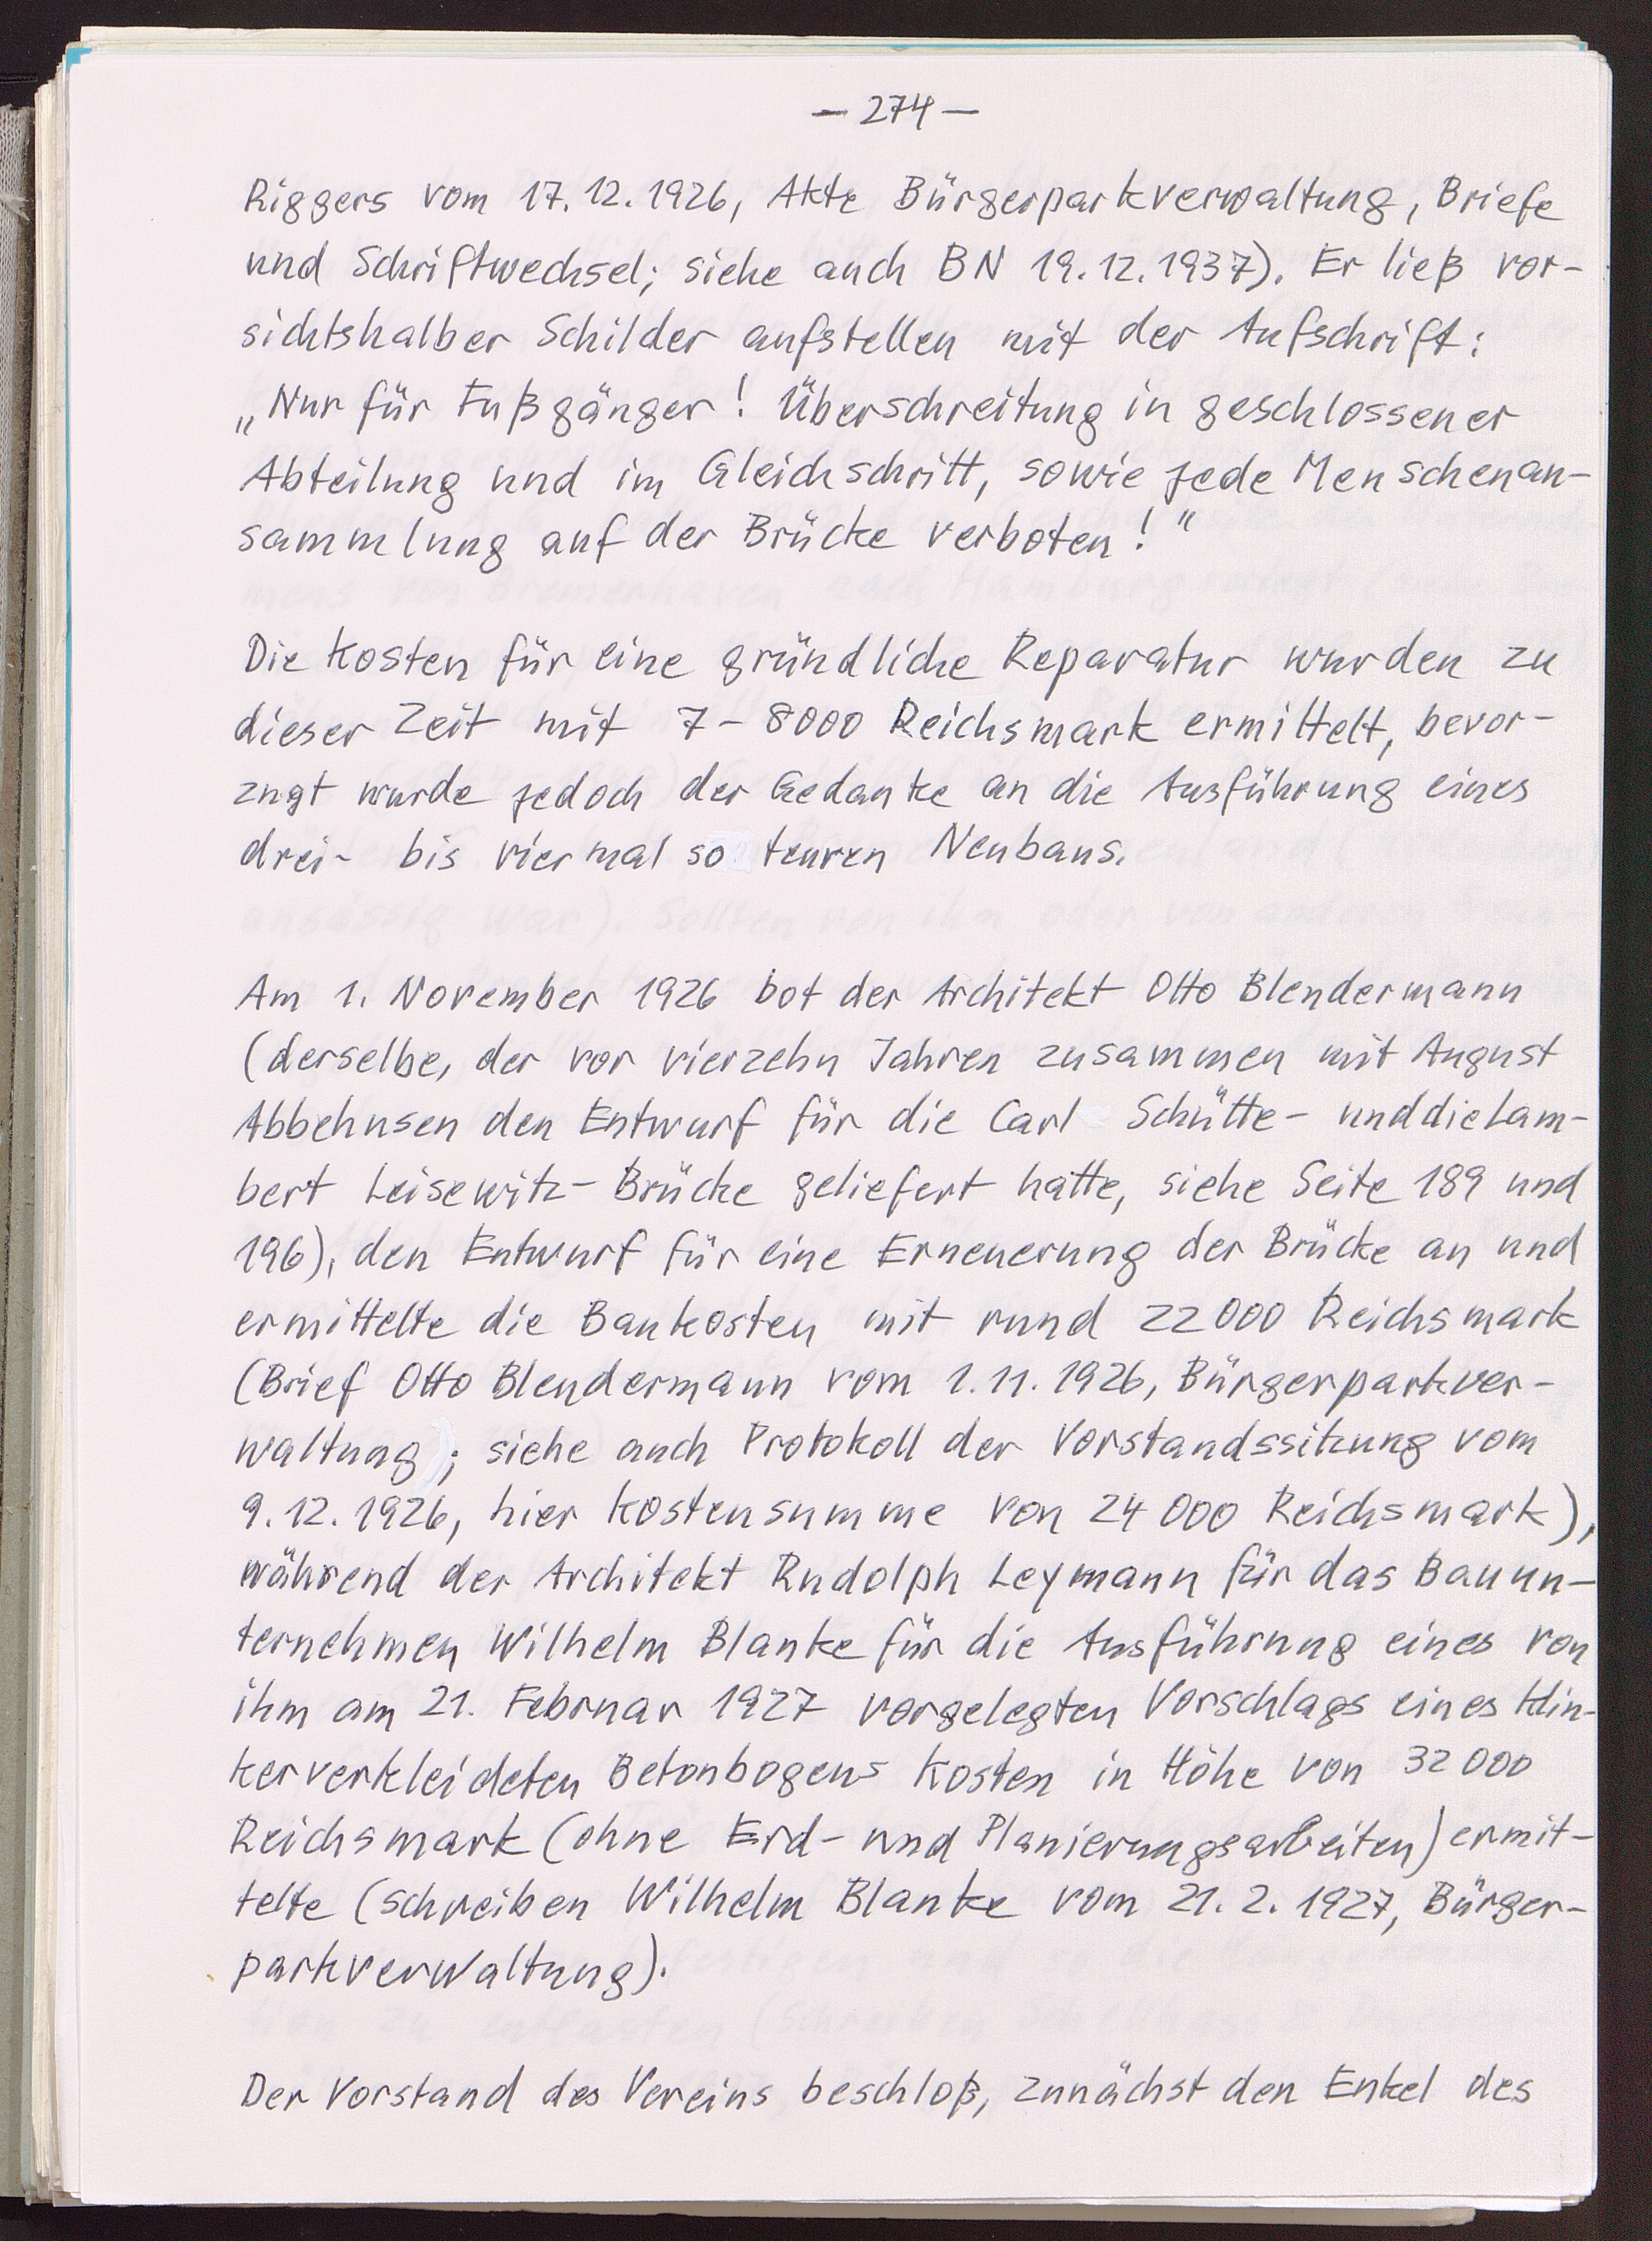 — 274 —
Riggers vom 17.12.1926, Akte Bürgerparkverwaltung, Briefe
und Schriftwechsel; siehe auch BN 19.12.1937). Er ließ vor-
sichtshalber Schilder aufstellen mit der Aufschrift:
„Nur für Fußgänger! Überschreitung in geschlossener
Abteilung und im Gleichschritt, sowie jede Menschenan-
sammlung auf der Brücke verboten!"
Die Kosten für eine gründliche Reparatur wurden zu
dieser Zeit mit 7 - 8000 Reichsmark ermittelt, bevor-
zugt wurde jedoch der Gedanke an die Ausführung eines
drei- bis viermal so teuren Neubaus.
Am 1. November 1926 bot der Architekt Otto Blendermann
(derselbe, der vor vierzehn Jahren zusammen mit August
Abbehusen den Entwurf für die Carl Schütte- und die Lam-
bert Leisewitz-Brücke geliefert hatte, siehe Seite 189 und
196), den Entwurf für eine Erneuerung der Brücke an und
ermittelte die Baukosten mit rund 22 000 Reichsmark
(Brief Otto Blendermann vom 1.11.1926, Bürgerparkver-
waltung; siehe auch Protokoll der Vorstandssitzung vom
9.12.1926, hier Kostensumme von 24 000 Reichsmark),
während der Architekt Rudolph Leymann für das Bauun-
ternehmen Wilhelm Blanke für die Ausführung eines von
ihm am 21. Februar 1927 vorgelegten Vorschlags eines klin-
kerverkleideten Betonbogens Kosten in Höhe von 32 000
Reichsmark (ohne Erd- und Planierungsarbeiten) ermit-
telte (Schreiben Wilhelm Blanke vom 21.2.1927, Bürger-
parkverwaltung).
Der Vorstand des Vereins beschloß, zunächst den Enkel des